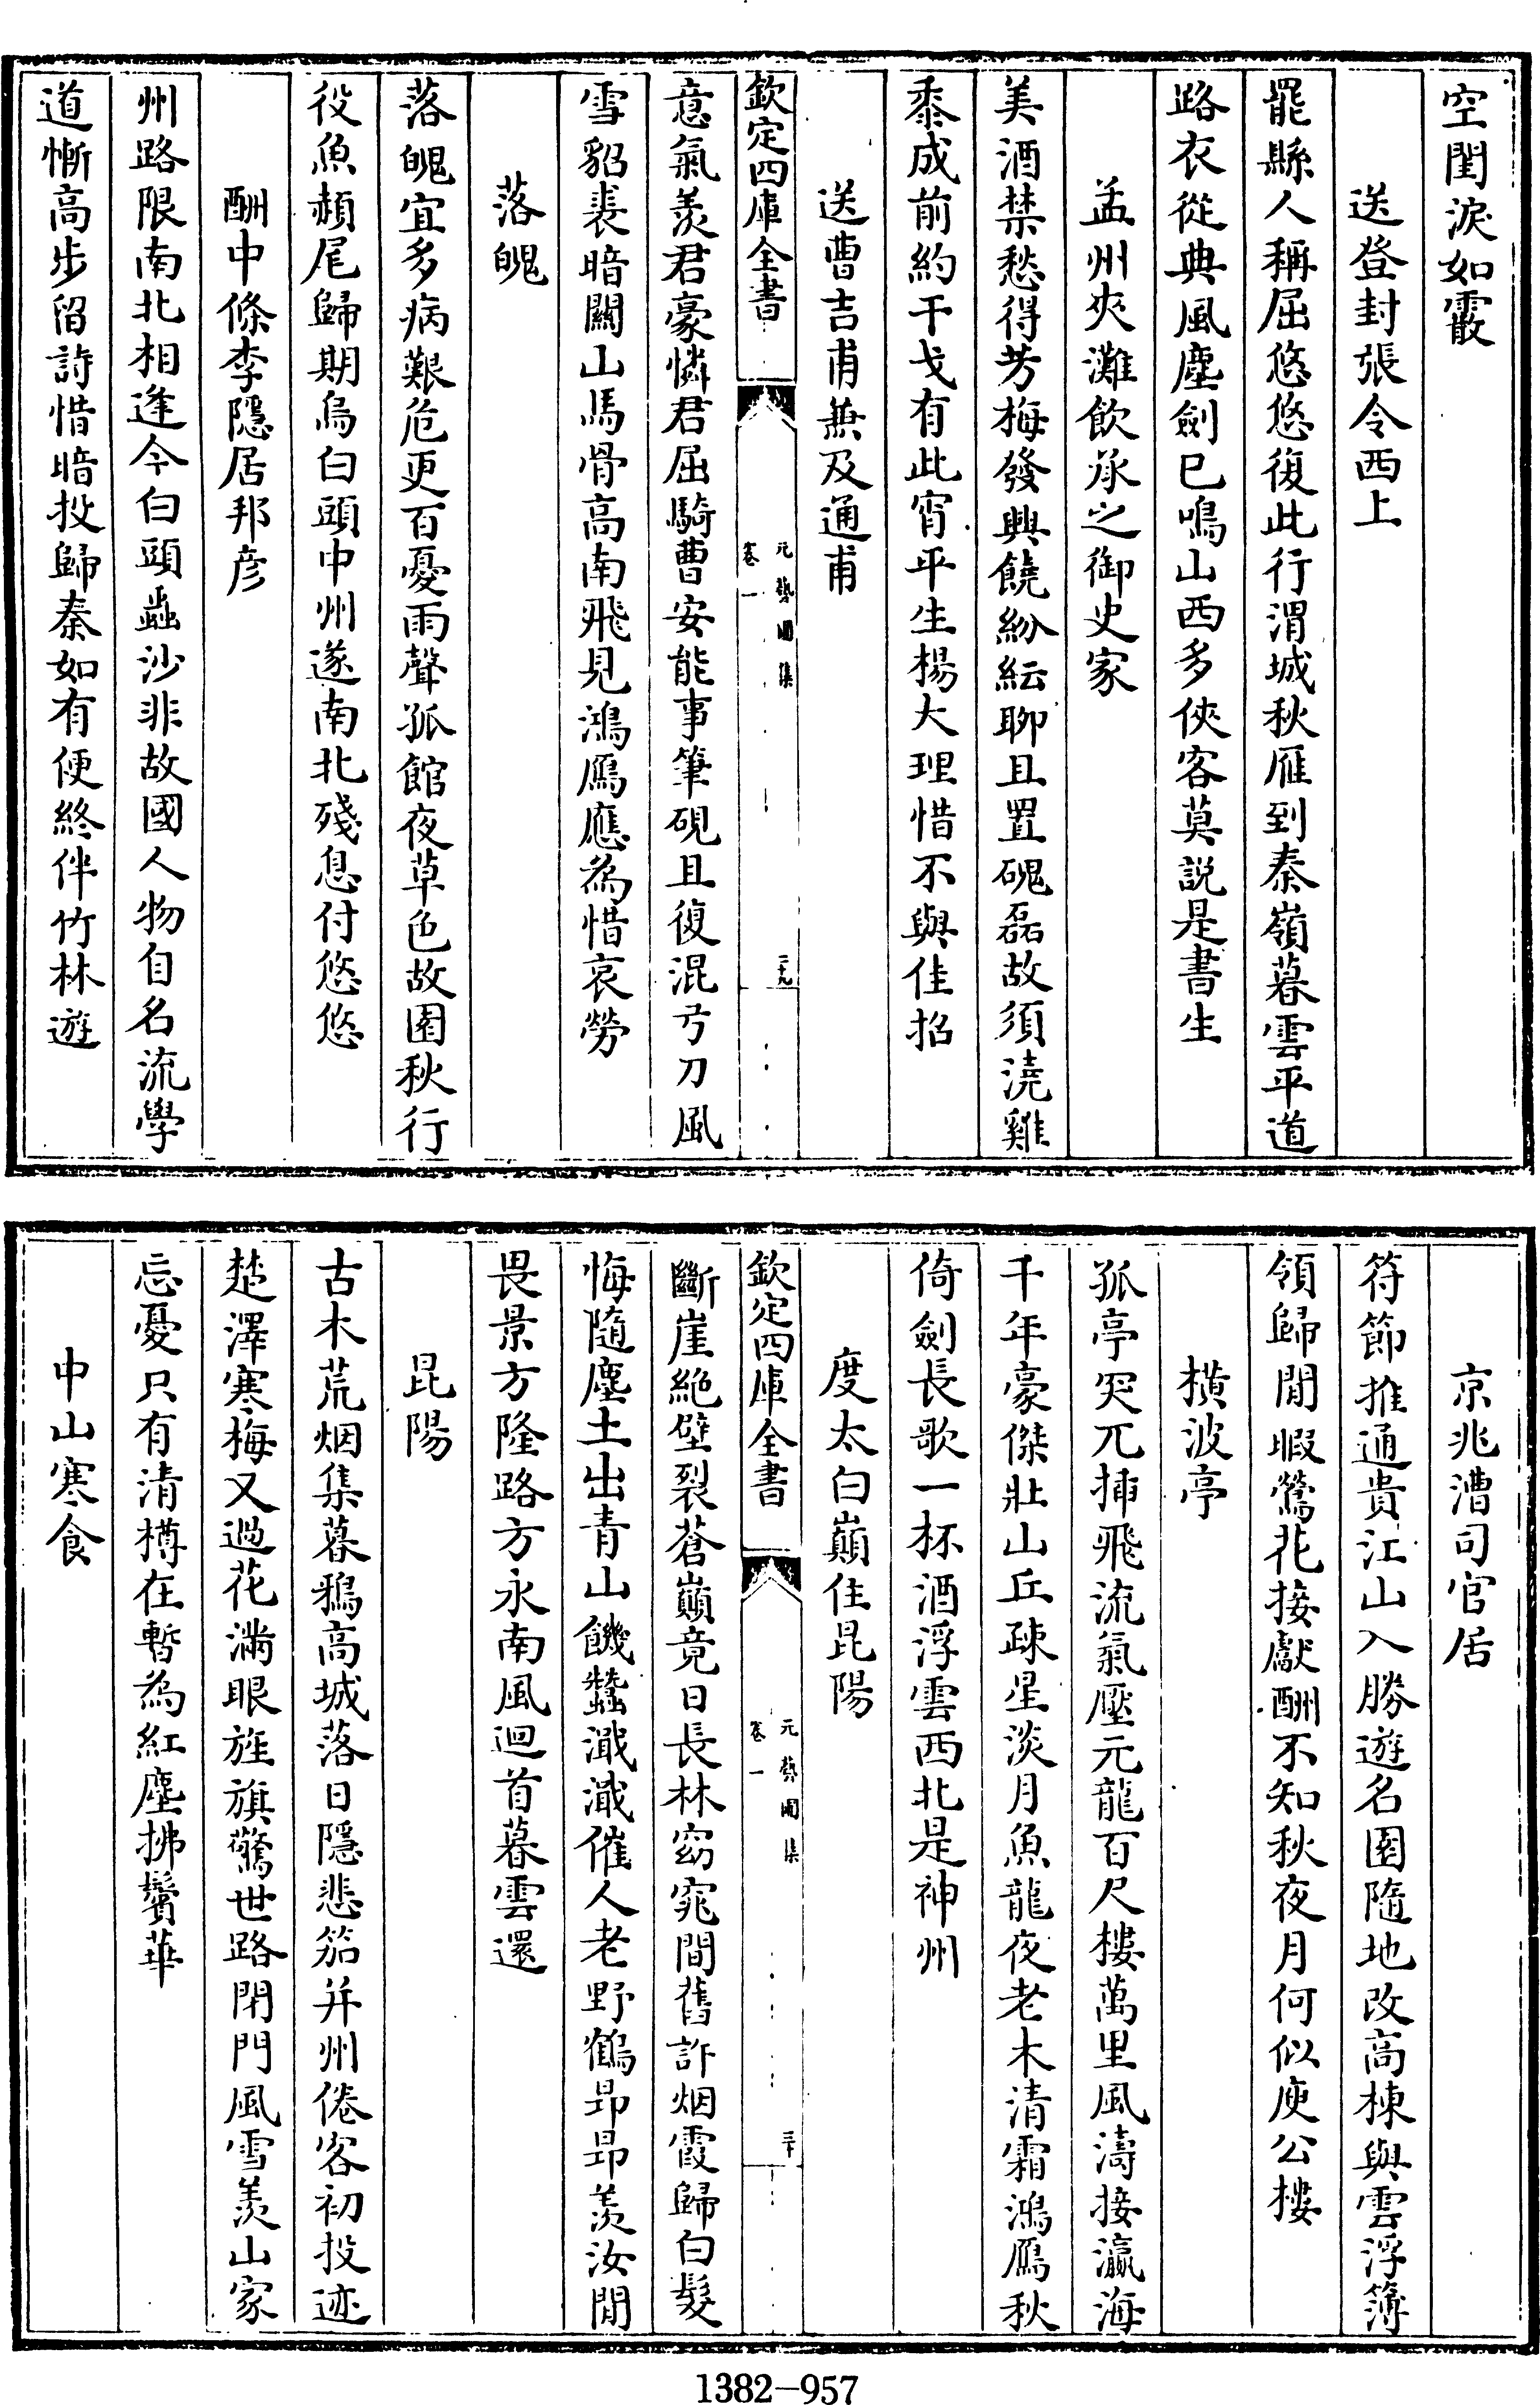 空閨淚如霰
送登封張令西上
罷縣人稱屈悠悠復此行渭城秋雁到秦嶺暮雲平道
路衣從典風塵劍巳鳴山西多俠客莫説是書生
孟州夾灘飲承之御史家
美酒禁愁得芳梅發興饒紛紜聊且置磈磊故須澆雞
黍成前約干戈有此宵平生楊大理惜不與佳招
送曹吉甫兼及通甫
欽定四庫全書
元藝圃集
卷一
二十九
意氣羨君豪憐君屈騎曹安能事筆硯且復混弓刀風
雪貂裘暗關山馬骨高南飛見鴻鴈應為惜哀勞
落魄
落魄宜多病艱危更百憂雨聲孤館夜草色故園秋行
役魚赬尾歸期烏白頭中州遂南北殘息付悠悠
酬中條李隱居邦彦
州路限南北相逢今白頭蟲沙非故國人物自名流學
道慚高步留詩惜暗投歸秦如有便終伴竹林遊
京兆漕司官居
符節推通貴江山入勝遊名園隨地改高棟與雲浮簿
領歸閒暇鶯花接獻酬不知秋夜月何似庾公樓
橫波亭
孤亭突兀揷飛流氣壓元龍百尺樓萬里風濤接瀛海
千年豪傑壯山丘疎星淡月魚龍夜老木清霜鴻鴈秋
倚劍長歌一杯酒浮雲西北是神州
度太白巔住昆陽
欽定四庫全書
元藝圃集
卷一
三十
斷崖絶壁裂蒼巔竟日長林窈窕間舊許烟霞歸白髮
悔隨塵土出青山饑蠶濈濈催人老野鶴昻昻羨汝閒
畏景方隆路方永南風迴首暮雲還
昆陽
古木荒烟集暮鴉高城落日隱悲笳并州倦客初投迹
楚澤寒梅又過花滿眼旌旗驚世路閉門風雪羨山家
忘憂只有清樽在暫為紅塵拂鬢華
中山寒食
1382-957